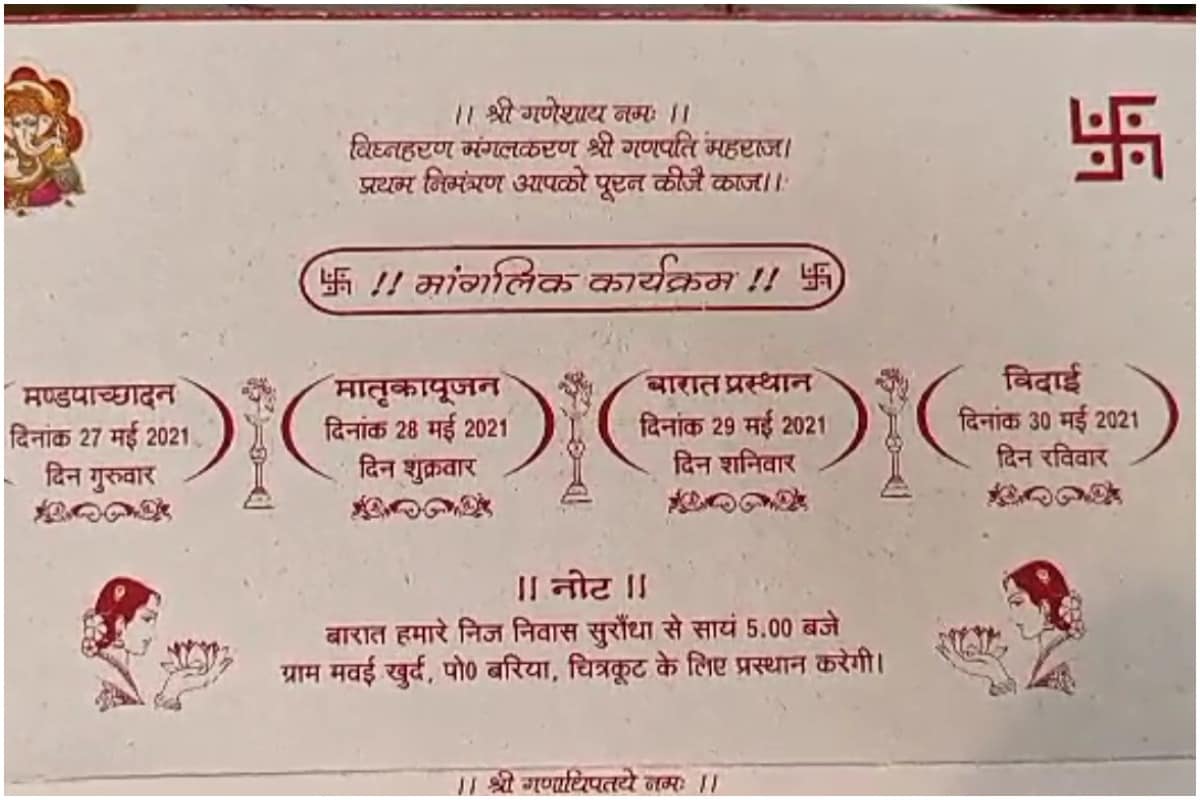 ।। श्री गणेशाय नमः ।।
विघ्नहरण मंगलकरण श्री गणपति महराज।
प्रथम निमंत्रण आपको पूरन कीजै काज।।
!! मांगलिक कार्यक्रम !!
मण्डपाच्छादन
दिनांक 27 मई 2021
दिन गुरुवार
मातृकापूजन
दिनांक 28 मई 2021
दिन शुक्रवार
बारात प्रस्थान
दिनांक 29 मई 2021
दिन शनिवार
विदाई
दिनांक 30 मई 2021
दिन रविवार
।। नोट ।।
बारात हमारे निज निवास सुरौंधा से सायं 5.00 बजे
ग्राम मवई खुर्द, पो0 बरिया, चित्रकूट के लिए प्रस्थान करेगी।
।। श्री गणाधिपतये नमः ।।